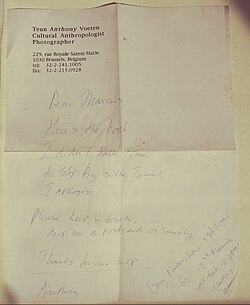 Teun Anthony Voeten
Cultural Anthropologist
Photographer
229, rue Royale Sainte Marie
1030 Brussels, Belgium
tel: 32-2-241.1005
fax: 32-2-215.0928
Dear Marcus
Here's the book
I didn't have time
to stop by in the Tunnel
I apologize
Please keep in touch
drop me a postcard or something
Thanks for your help
Anthony